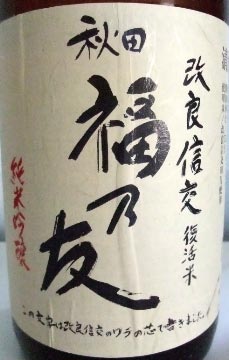 改良信交
復活米
秋田
福乃友
純米吟醸
この文字は改良信交のワラの芯で書きました。